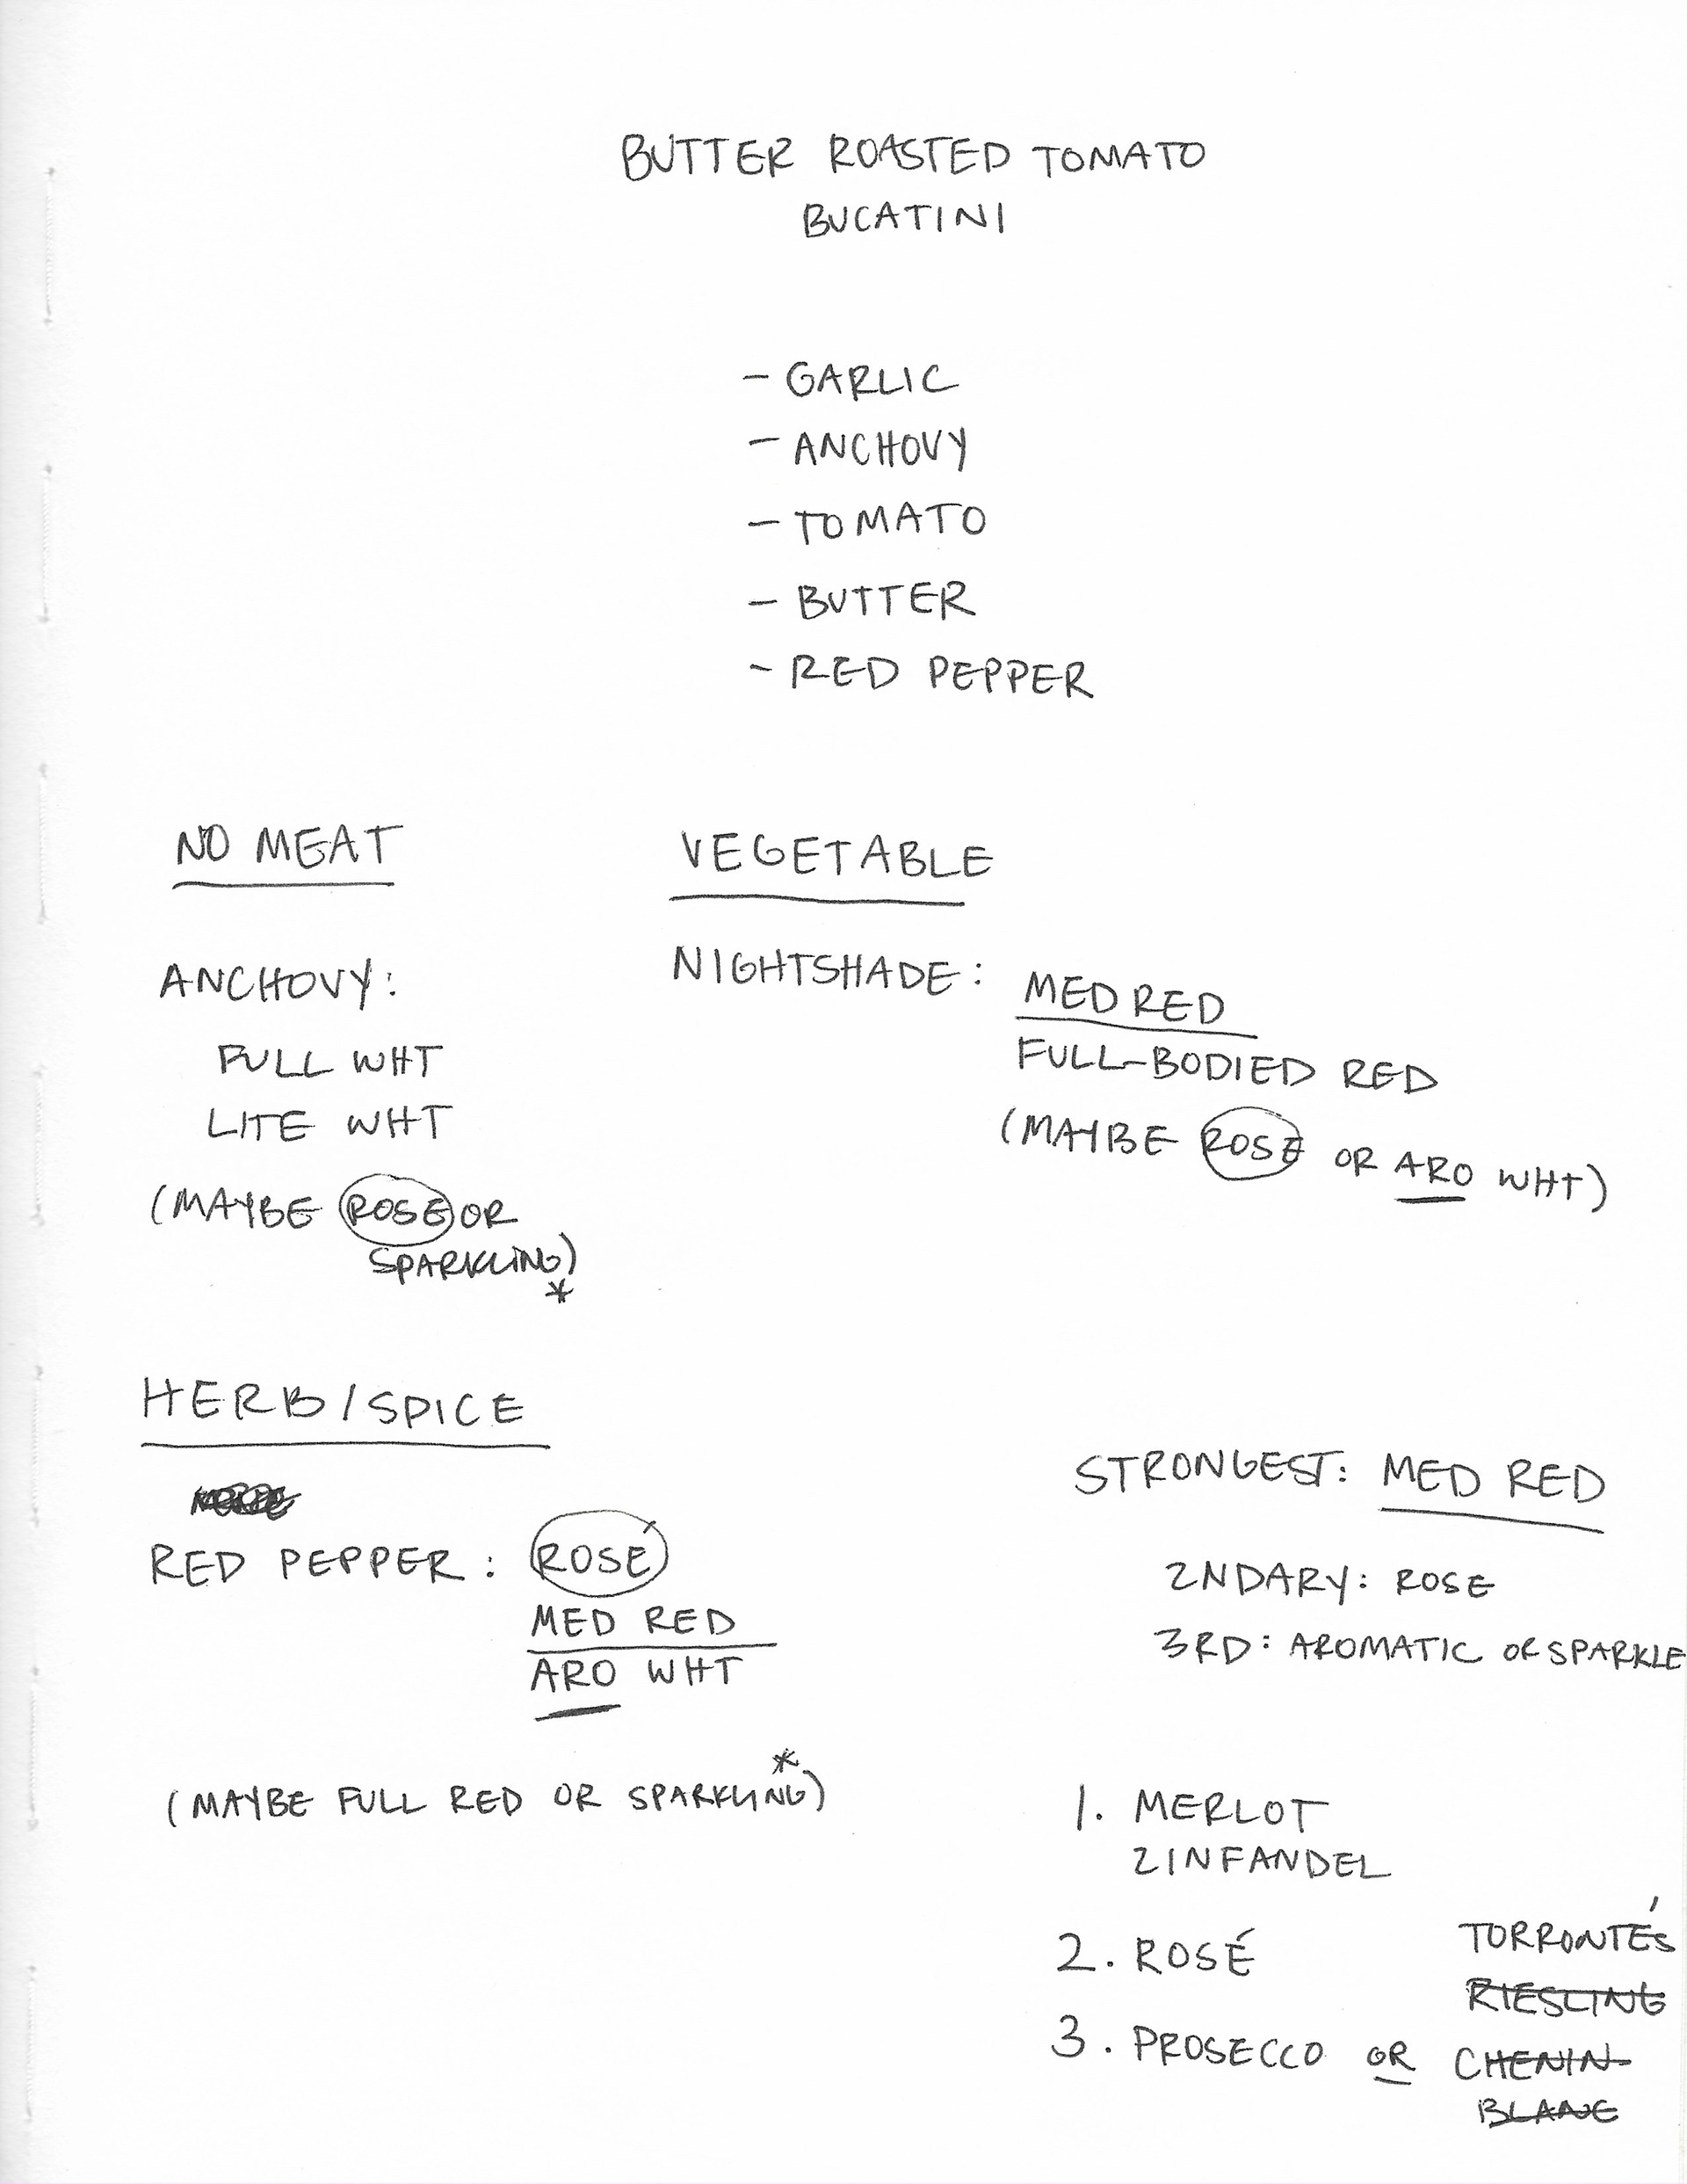 BUTTER ROASTED TOMATO
BUCATINI
- GARLIC
- ANCHOVY
- TOMATO
- BUTTER
- RED PEPPER
NO MEAT
ANCHOVY:
FULL WHT
LITE WHT
(MAYBE ROSE OR
SPARKLING)
*
VEGETABLE
NIGHTSHADE: MED RED
FULL-BODIED RED
(MAYBE ROSE OR ARO WHT)
HERB/SPICE
RED PEPPER: ROSÉ
MED RED
ARO WHT
(MAYBE FULL RED OR SPARKLING*)
STRONGEST: MED RED
2NDARY: ROSE
3RD: AROMATIC OR SPARKLE
1. MERLOT
ZINFANDEL
2. ROSÉ
3. PROSECCO OR
TORRONTÉS
RIESLING
CHENIN
BLANC